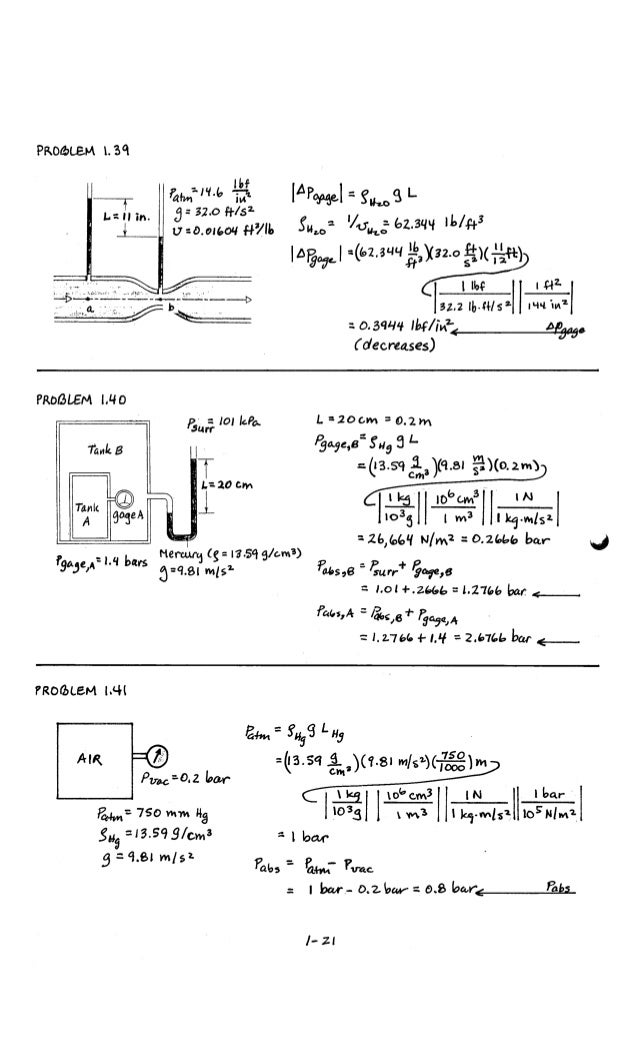 PROBLEM 1.39
Patm = 14.6 lbf/in²
g = 32.0 ft/s²
υ = 0.01604 ft³/lb
L = 11 in.
a
b
|ΔPgage| = ρH2O g L
ρH2O = 1/υH2O = 62.344 lb/ft³
|ΔPgage| = (62.344 lb/ft³)(32.0 ft/s²)(11/12 ft)
|1 lbf / 32.2 lb·ft/s²| |1 ft² / 144 in²|
= 0.3944 lbf/in² ΔPgage
(decreases)
PROBLEM 1.40
Psurr = 101 kPa
Tank B
L = 20 cm
Tank A
gage A
Pgage,A = 1.4 bars
Mercury (ρ = 13.59 g/cm³)
g = 9.81 m/s²
L = 20 cm = 0.2 m
Pgage,B = ρHg g L
= (13.59 g/cm³)(9.81 m/s²)(0.2 m)
|1 kg / 10³g| |10⁶ cm³ / 1 m³| |1 N / 1 kg·m/s²|
= 26,664 N/m² = 0.2666 bar
Pabs,B = Psurr + Pgage,B
= 1.01 + .2666 = 1.2766 bar
Pabs,A = Pabs,B + Pgage,A
= 1.2766 + 1.4 = 2.6766 bar
PROBLEM 1.41
AIR
Pvac = 0.2 bar
Patm = 750 mm Hg
ρHg = 13.59 g/cm³
g = 9.81 m/s²
Patm = ρHg g LHg
= (13.59 g/cm³)(9.81 m/s²)(750/1000) m
|1 kg / 10³g| |10⁶ cm³ / 1 m³| |1 N / 1 kg·m/s²| |1 bar / 10⁵ N/m²|
= 1 bar
Pabs = Patm - Pvac
= 1 bar - 0.2 bar = 0.8 bar Pabs
1-21